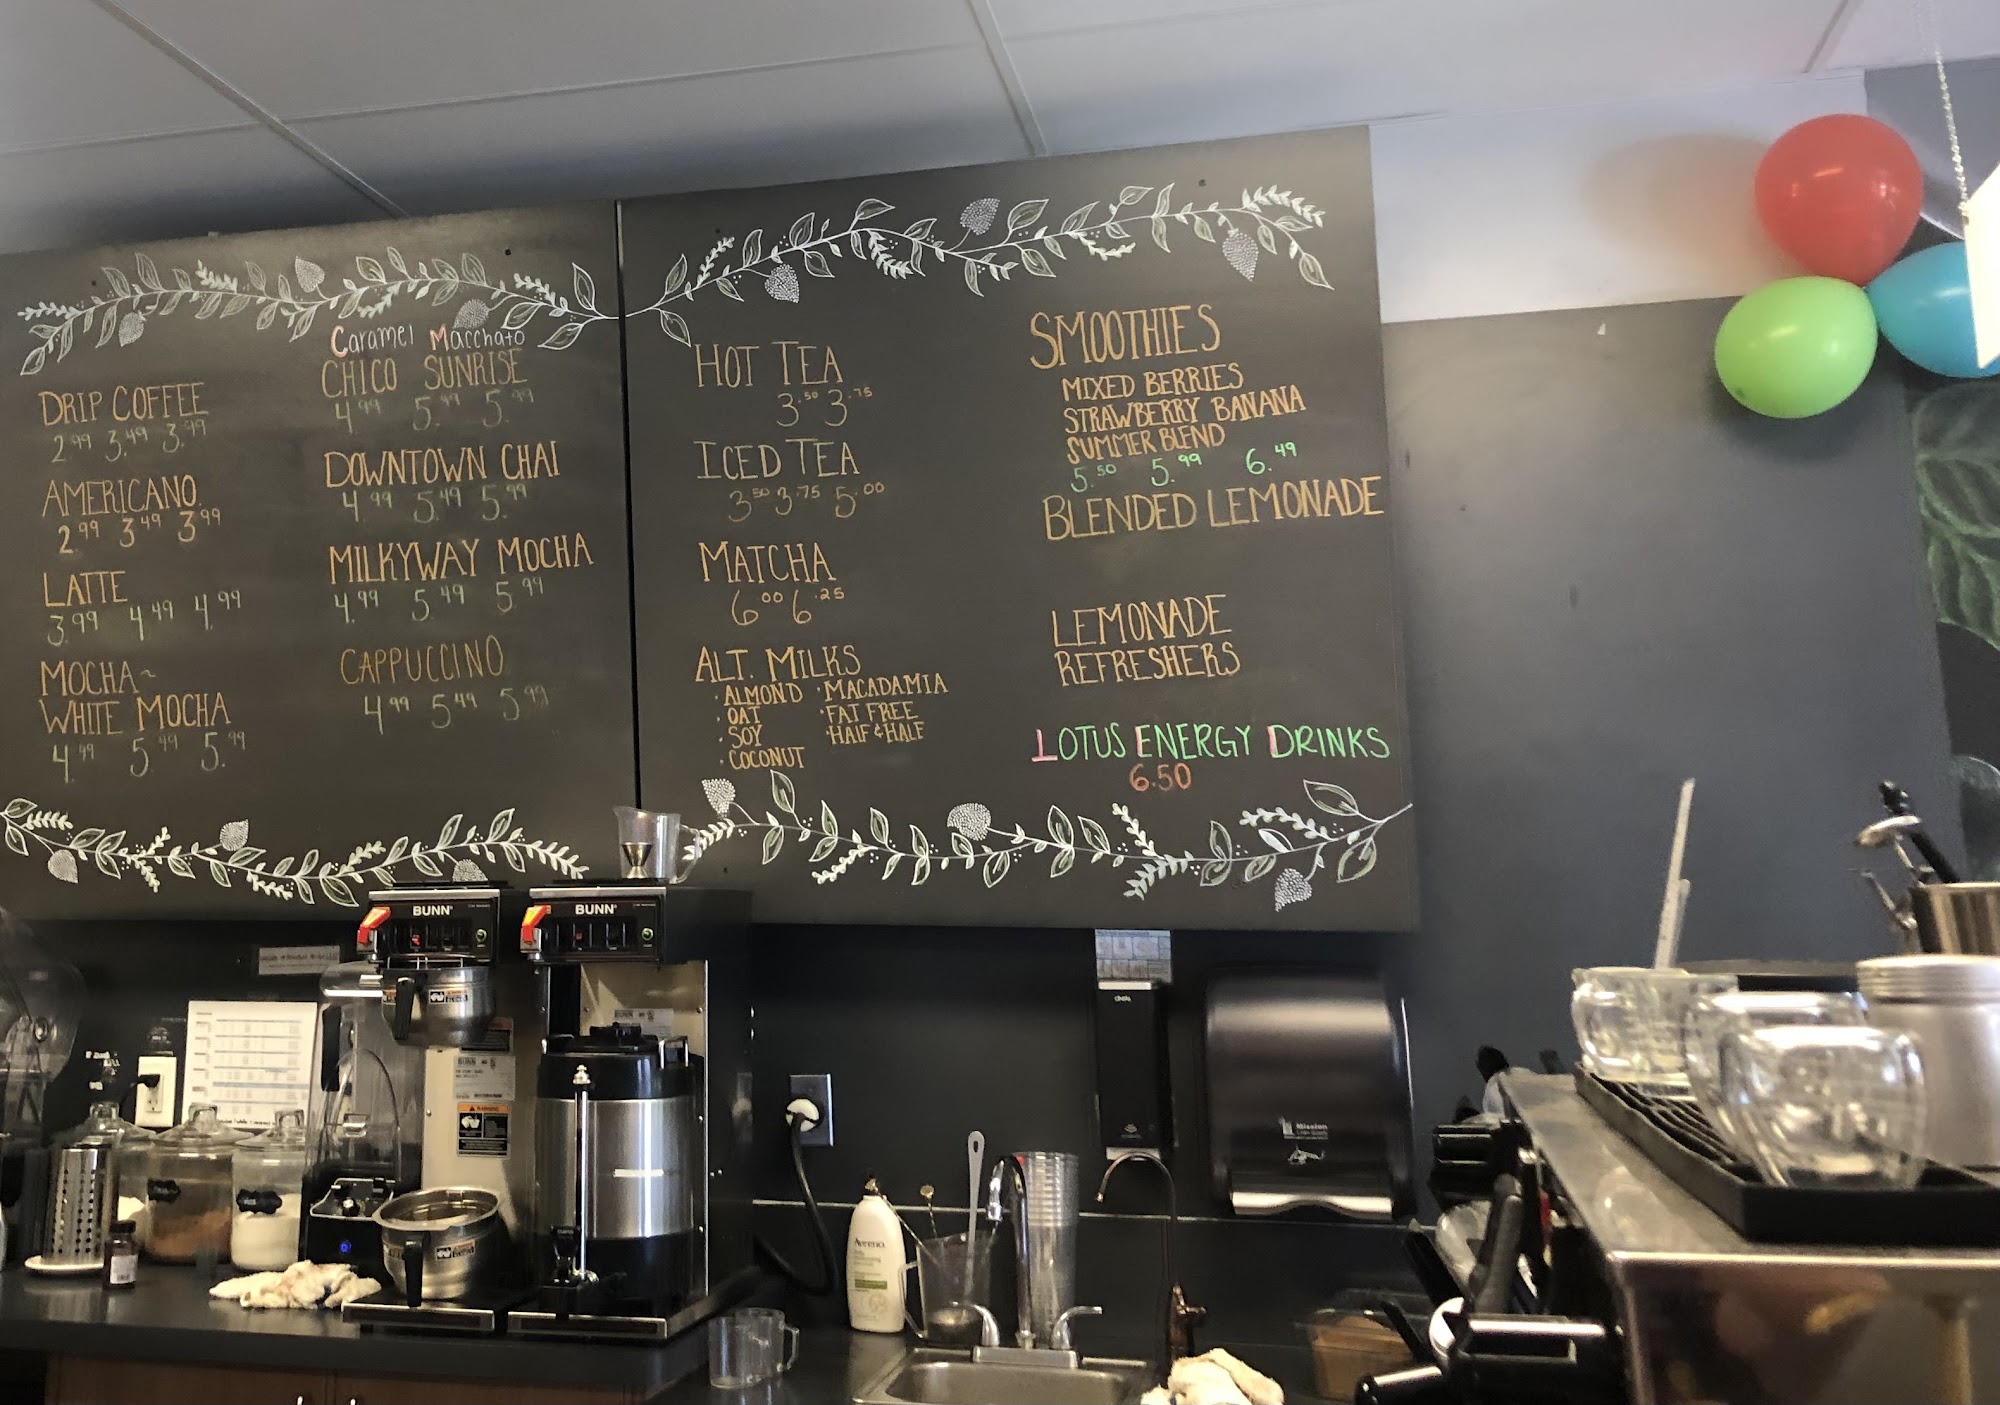 Caramel Macchato
CHICO SUNRISE
4.99 5.99 5.99
DRIP COFFEE
2.99 3.49 3.99
DOWNTOWN CHAI
4.99 5.49 5.99
AMERICANO
2.99 3.49 3.99
MILKYWAY MOCHA
4.99 5.49 5.99
LATTE
3.99 4.49 4.99
CAPPUCCINO
4.99 5.49 5.99
MOCHA~
WHITE MOCHA
4.49 5.49 5.99
HOT TEA
3.50 3.75
ICED TEA
3.50 3.75 5.00
MATCHA
6.00 6.25
ALT. MILKS
· ALMOND · MACADAMIA
· OAT · FAT FREE
· SOY · HALF & HALF
· COCONUT
SMOOTHIES
MIXED BERRIES
STRAWBERRY BANANA
SUMMER BLEND
5.50 5.99 6.49
BLENDED LEMONADE
LEMONADE
REFRESHERS
LOTUS ENERGY DRINKS
6.50
BUNN
BUNN
WARNING
Aveeno
Mission